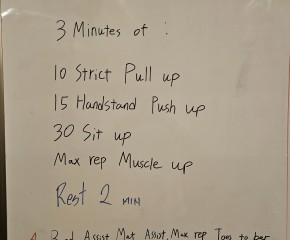 3 Minutes of :
10 Strict Pull up
15 Handstand Push up
30 Sit up
Max rep Muscle up
Rest 2 MIN
Assist Mat Assist, Max rep Toes to bar